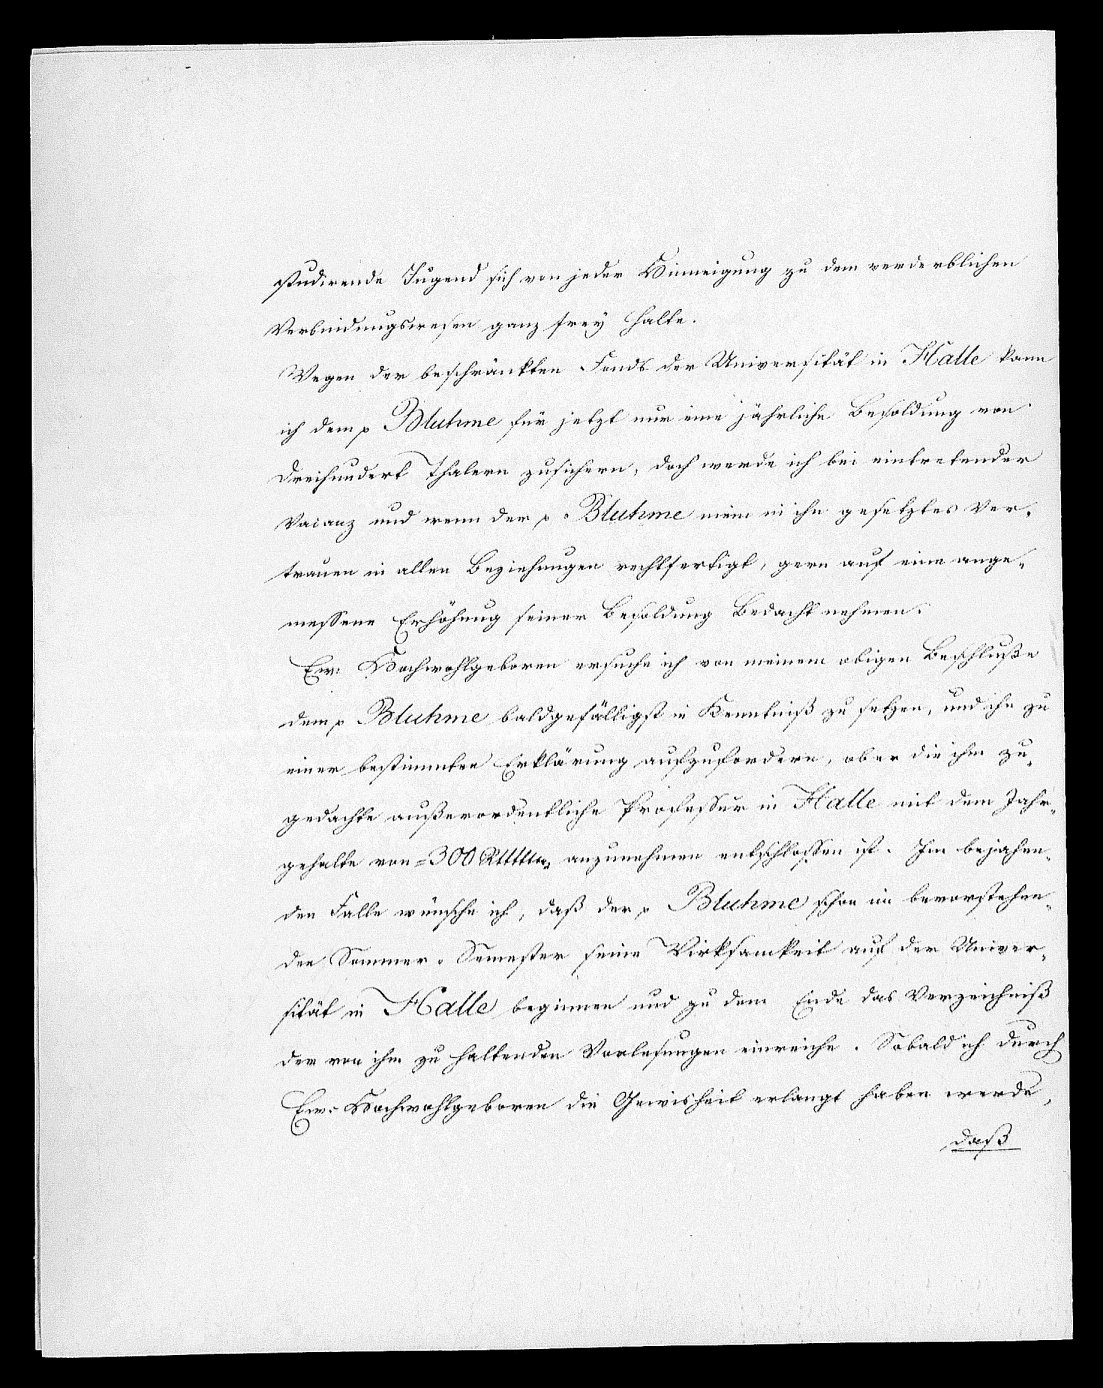 studirende Jugend sich von jeder Hinneigung zu dem verderblichen
Verbindungswesen ganz frey halte.
Wegen der beschränkten Fonds der Universität in Halle kann
ich dem p Bluhme für jetzt nur eine jährliche Besoldung von
dreihundert Thalern zusichern, doch werde ich bei eintretender
Vacanz und wenn der p. Bluhme mein in ihn gesetztes Ver-
trauen in allen Beziehungen rechtfertigt, gern auf eine ange-
messene Erhöhung seiner Besoldung Bedacht nehmen.
Ew: Hochwohlgeboren ersuche ich von meinem obigen Beschluße
dem p Bluhme baldgefälligst in Kenntniß zu setzen, und ihn zu
einer bestimmten Erklärung aufzufordern, ob er die ihm zu-
gedachte außerordentliche Professur in Halle mit dem Jahr-
gehalte von =300 anzunehmen entschlossen ist. Im bejahen-
den Falle wünsche ich, daß der p Bluhme schon im bevorstehen-
den Sommer-Semester seine Wirksamkeit auf der Univer-
sität in Halle beginnen und zu dem Ende das Verzeichniß
der von ihm zu haltenden Vorlesungen einreiche. Sobald ich durch
Ew: Hochwohlgeboren die Gewisheit erlangt haben werde,
daß